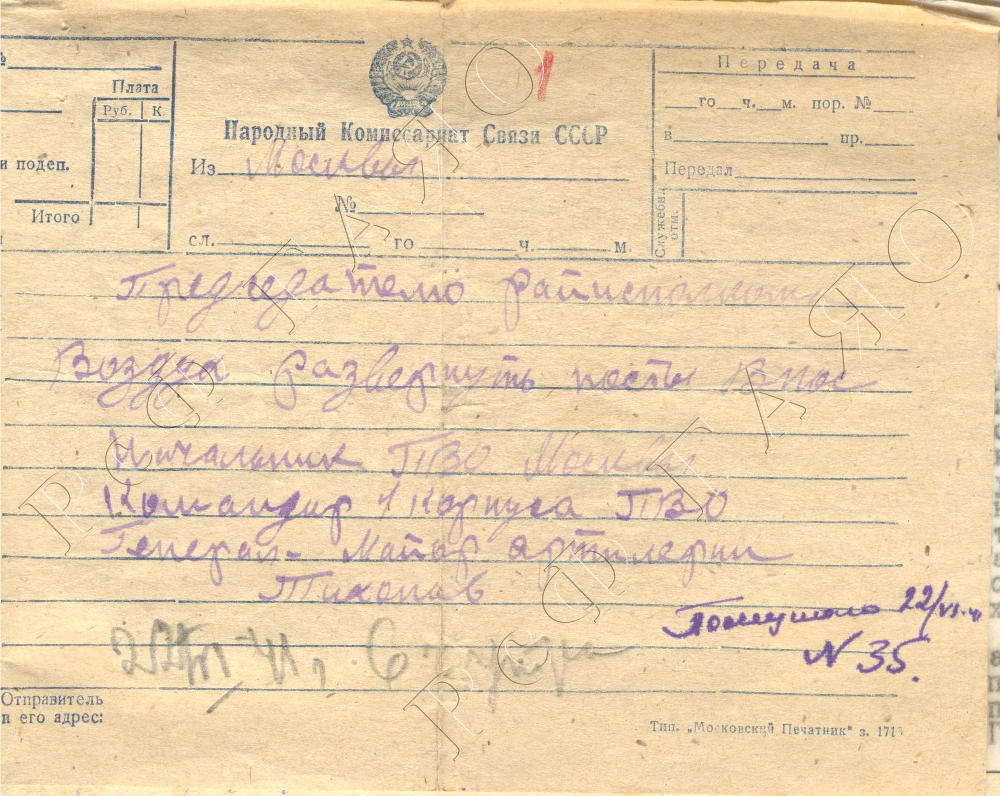 №
Плата
Руб. К.
и подеп.
Итого
1
Народный Комиссариат Связи СССР
Из Москвы
№
сл. го ч. м.
Передача
го ч. м. пор. №
в пр.
Передал
Служебн. отм.
Председателю райисполкома
Воздух развернуть посты Внос
Начальник ПВО Москвы
Командир 1 Корпуса ПВО
Генерал-Майор артилерии
Тихонов
22/VI 41 г. 6 ч. утра
Получено 22/VI-41
N 35.
Отправитель
и его адрес:
Тип. „Московский Печатник" з. 1713
РСФ ГАЯО
РСФ ГАЯО